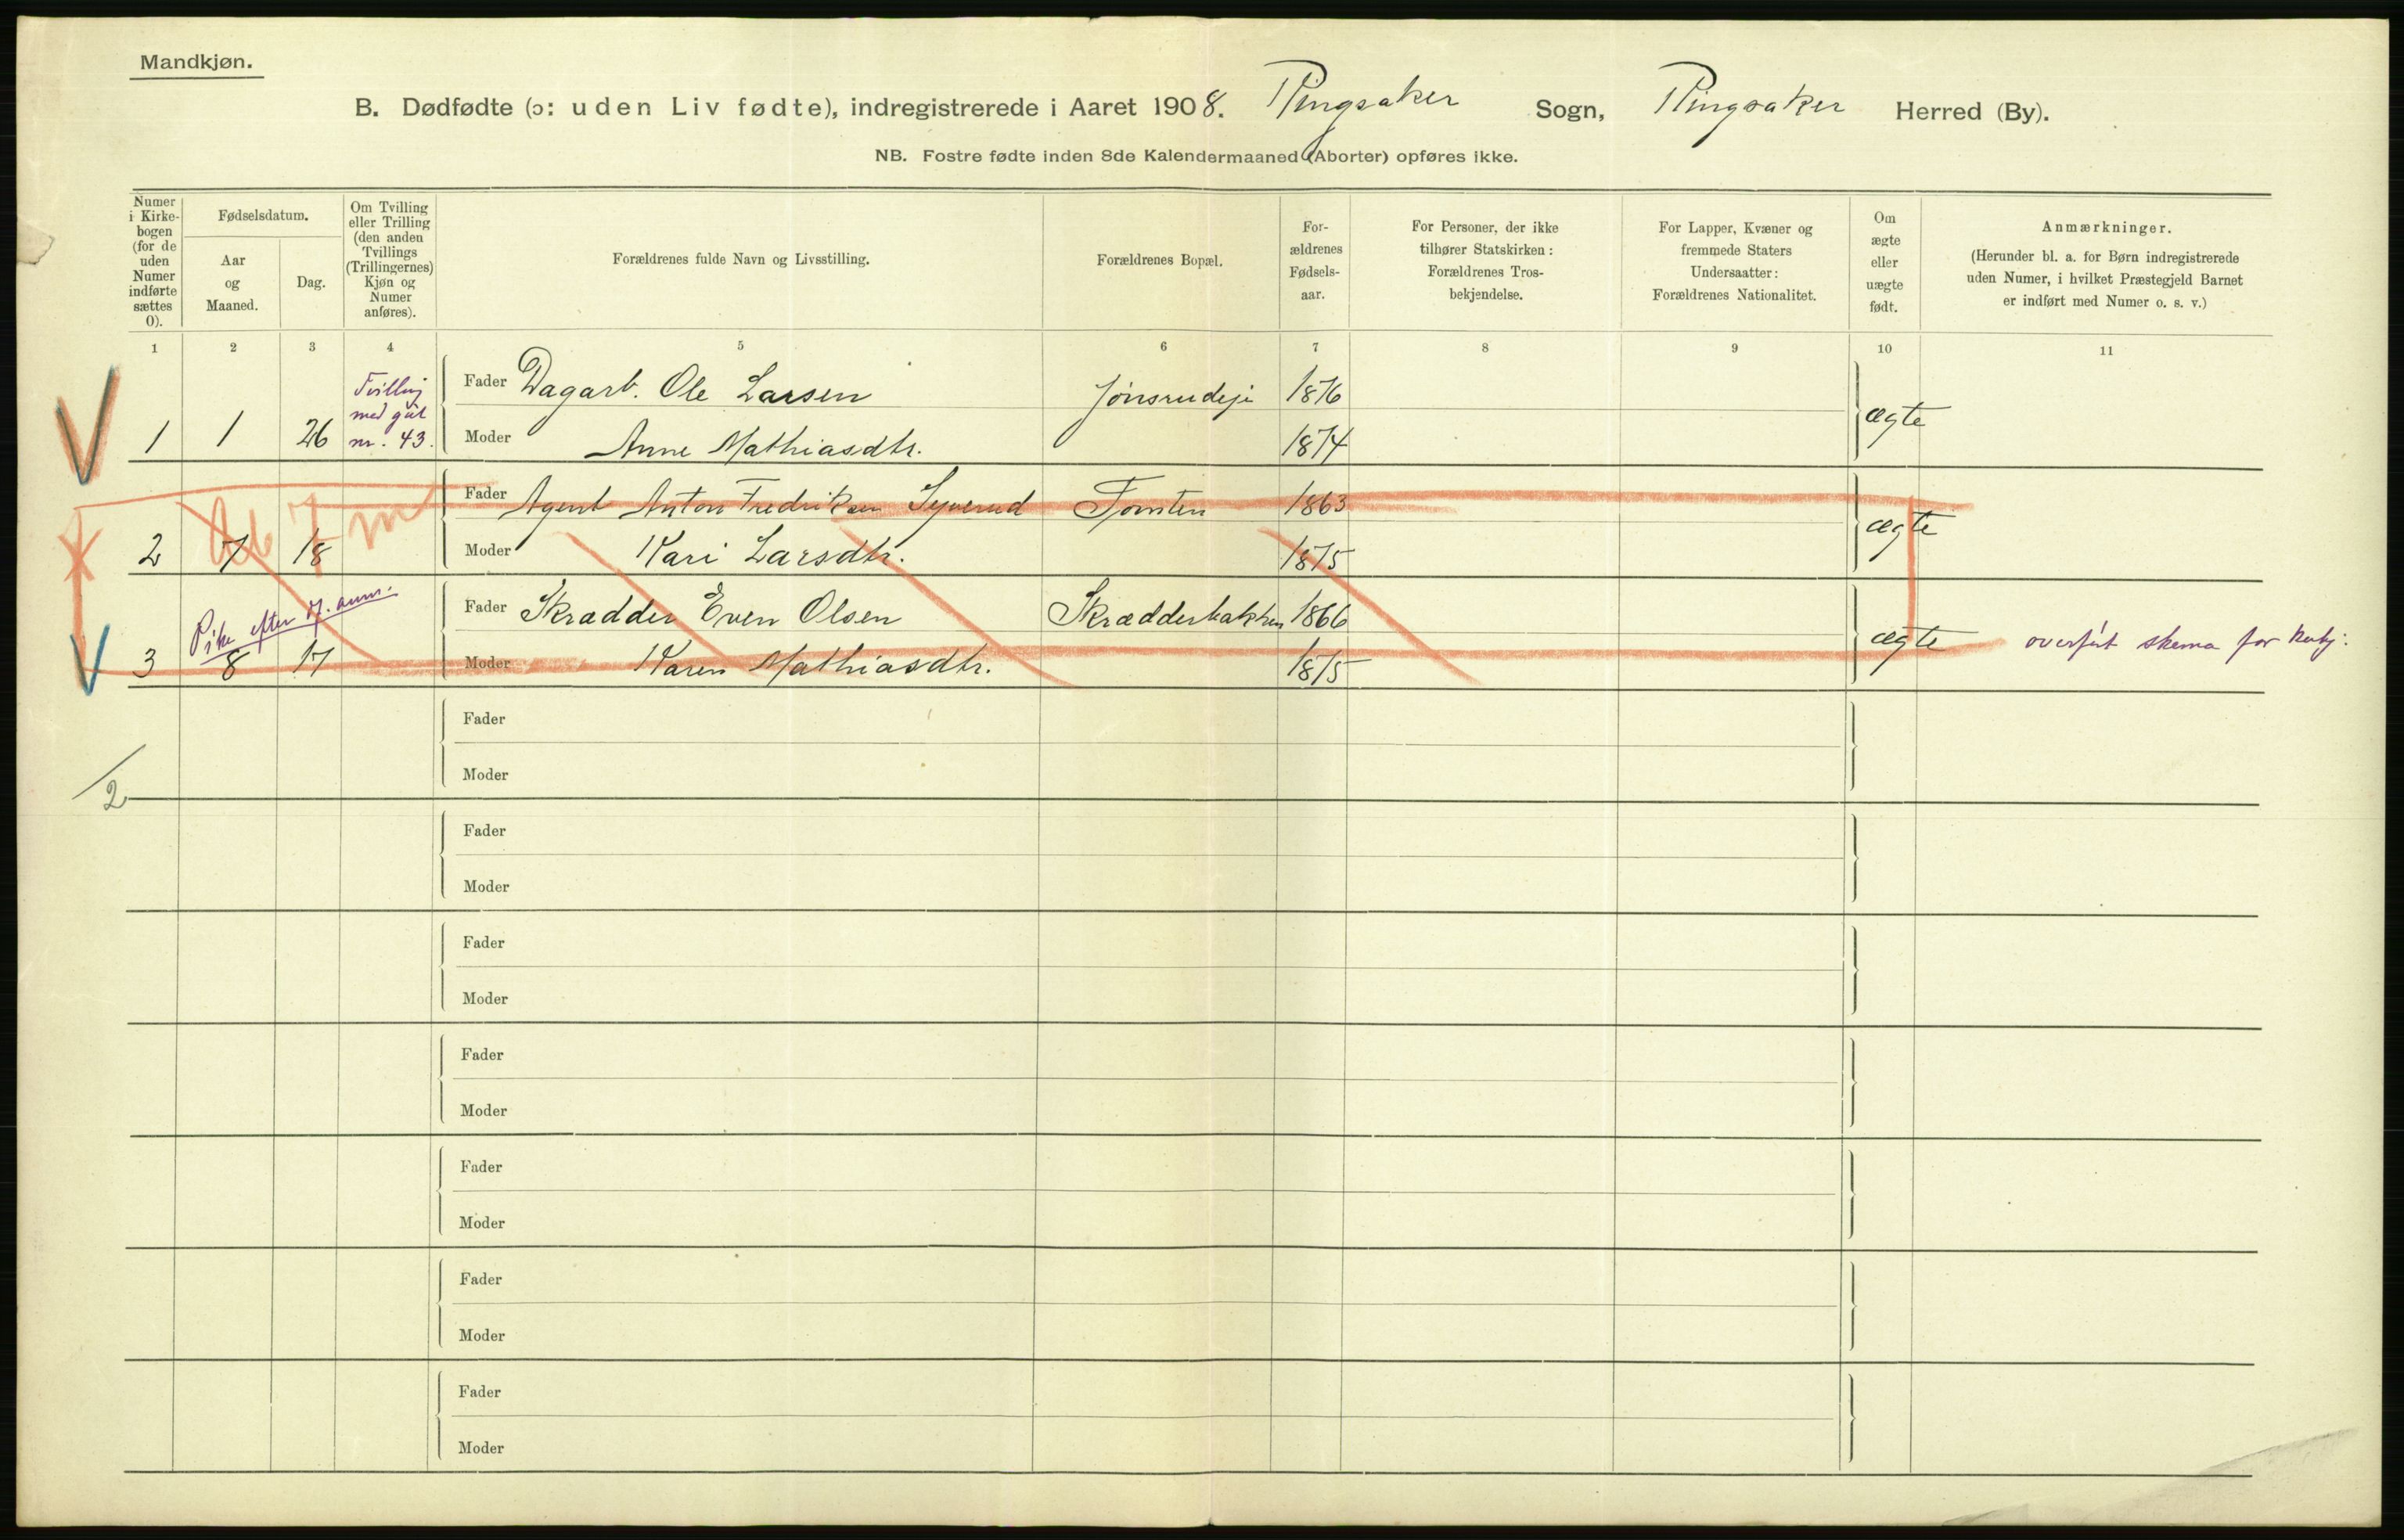 Mandkjøn.
B. Dødfødte (ɔ: uden Liv fødte), indregistrerede i Aaret 1908. Ringsaker Sogn, Ringsaker Herred (By).
NB. Fostre fødte inden 8de Kalendermaaned (Aborter) opføres ikke.
Numer
i Kirke-
bogen
(for de
uden
Numer
indførte
sættes
0).
Fødselsdatum.
Aar
og
Maaned.
Dag.
Om Tvilling
eller Trilling
(den anden
Tvillings
(Trillingernes)
Kjøn og
Numer
anføres).
Forældrenes fulde Navn og Livsstilling.
Forældrenes Bopæl.
For-
ældrenes
Fødsels-
aar.
For Personer, der ikke
tilhører Statskirken:
Forældrenes Tros-
bekjendelse.
For Lapper, Kvæner og
fremmede Staters
Undersaatter:
Forældrenes Nationalitet.
Om
ægte
eller
uægte
født.
Anmærkninger.
(Herunder bl. a. for Børn indregistrerede
uden Numer, i hvilket Præstegjeld Barnet
er indført med Numer o. s. v.)
1 2 3 4 5 6 7 8 9 10 11
Tvilling
med gut
nr. 43.
Fader Dagarb. Ole Larsen Jønsrudeje 1876
1 1 26 Moder Anne Mathiasdtr. 1874 ægte
Fader Agent Anton Fredriksen Syverud Tomten 1863
2 7 18 Moder Kari Larsdtr. 1875 ægte
Ab 7 m
Pike efter d. anm.
Fader Skrædder Even Olsen Skrædderbakken 1866
3 8 17 Moder Karen Mathiasdtr. 1875 ægte overført skema for kvkj:
Fader
Moder
2
Fader
Moder
Fader
Moder
Fader
Moder
Fader
Moder
Fader
Moder
Fader
Moder